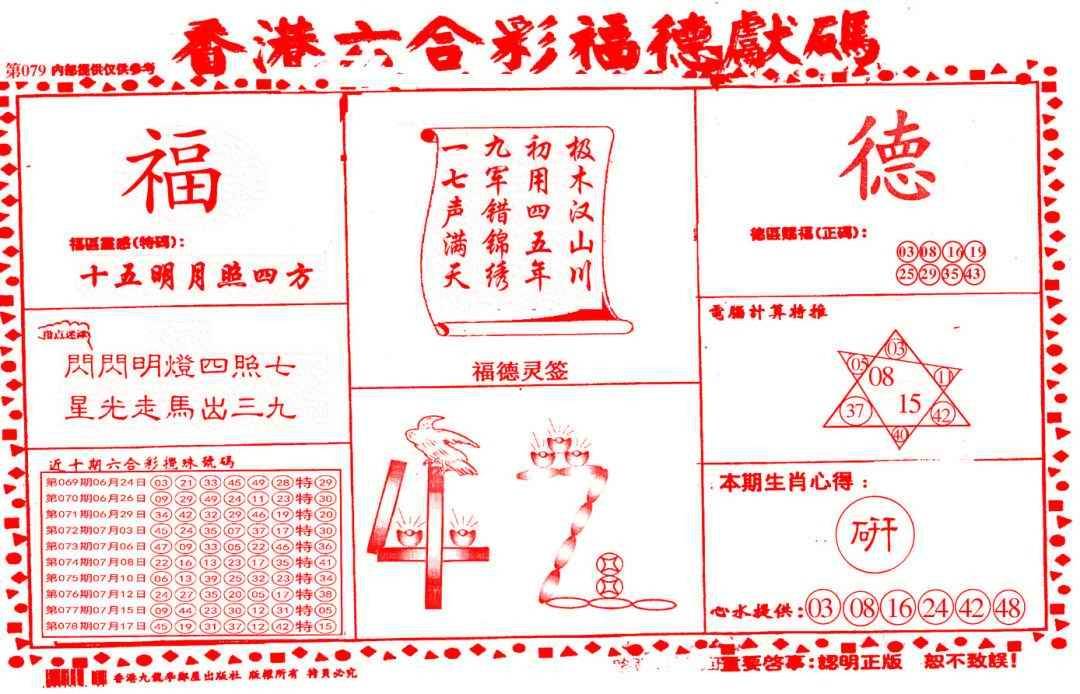 香港六合彩福德獻碼
第079 内部提供仅供参考
福
福區靈感(特碼):
十五明月照四方
閃閃明燈四照七
星光走馬出三九
近十期六合彩攪珠號碼
第069期06月24日 03 21 33 45 49 28 特 29
第070期06月26日 09 29 49 24 11 23 特 30
第071期06月29日 34 42 32 29 46 19 特 20
第072期07月03日 45 24 35 07 37 17 特 30
第073期07月06日 47 09 33 05 22 46 特 36
第074期07月08日 22 16 13 23 17 35 特 41
第075期07月10日 06 13 39 25 32 23 特 34
第076期07月12日 24 27 35 20 05 17 特 38
第077期07月15日 09 44 23 30 12 31 特 05
第078期07月17日 45 19 31 37 12 42 特 15
极木汉山川
初用四五年
九军错锦绣
一七声满天
福德灵签
42
德
德區賜福(正碼):
03 08 16 19
25 29 35 43
電腦計算特推
03
05 08 11
37 15 42
40
本期生肖心得:
研
心水提供: 03 08 16 24 42 48
重要啓事:認明正版 恕不致誤!
香港九龍 出版社 版權所有 必究